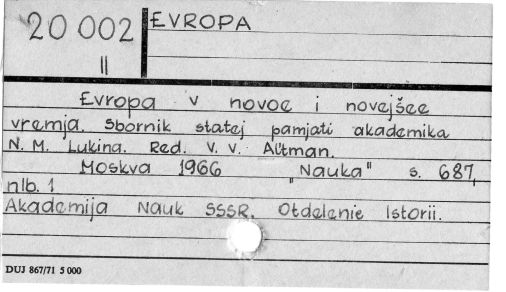 20 002
II
EVROPA
Evropa v novoe i novejšee
vremja. Sbornik statej pamjati akademika
N. M. Lukina. Red. V. V. Altman.
Moskva 1966 "Nauka" s. 687,
nlb. 1
Akademija Nauk SSSR. Otdelenie Istorii.
DUJ 867/71 5 000